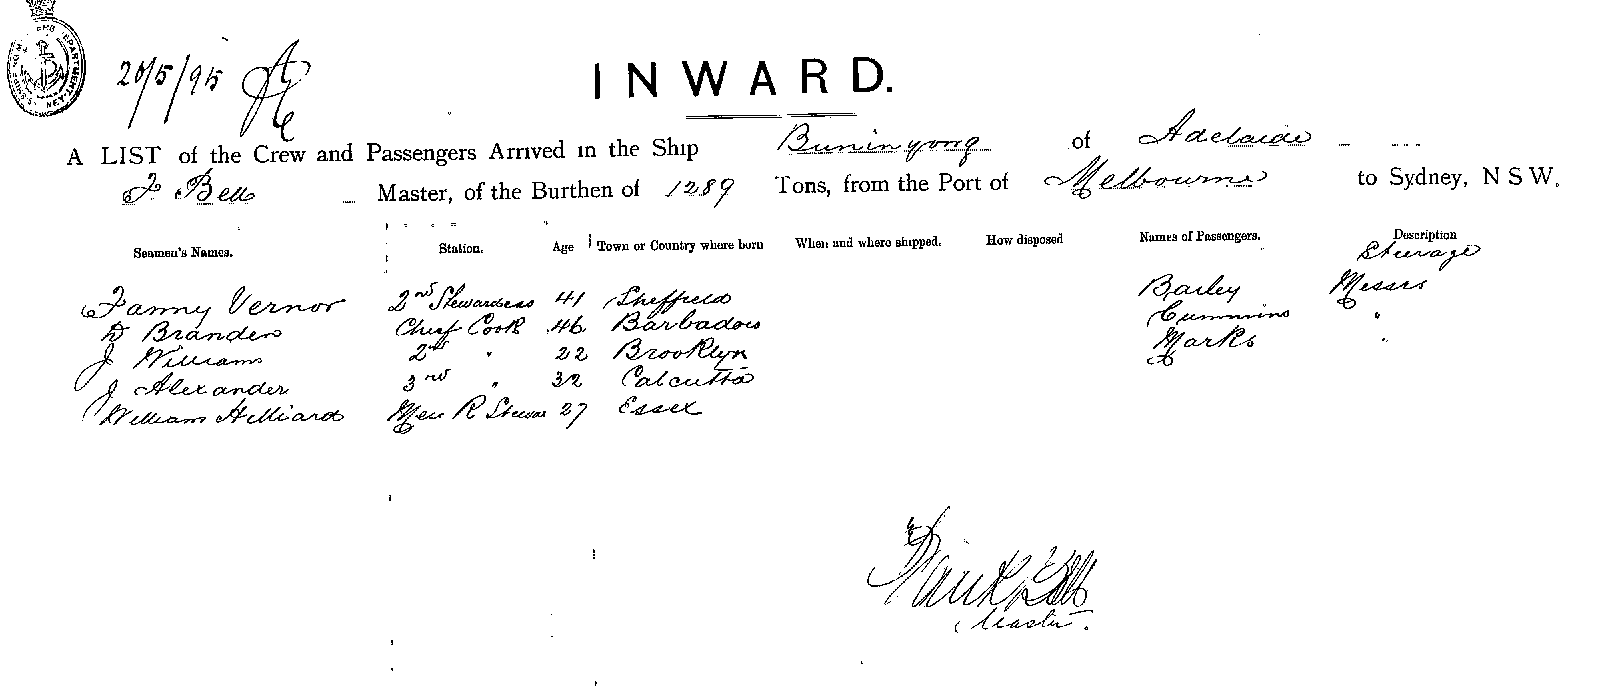 20/5/95
INWARD.
A LIST of the Crew and Passengers Arrived in the Ship Buninyong of Adelaide
F Bell Master, of the Burthen of 1289 Tons, from the Port of Melbourne to Sydney, N S W.
Seamen's Names. Station. Age Town or Country where born When and where shipped. How disposed Names of Passengers. Description
Steerage
Fanny Vernor 2nd Stewardess 41 Sheffield Bailey Messrs
D Branden Chief Cook 46 Barbados Cummins "
J Williams 2nd " 22 Brooklyn Marks "
J Alexander 3rd " 32 Calcutta
William Hilliard Mess R Stewar 27 Essex
Frank Bell
Master.